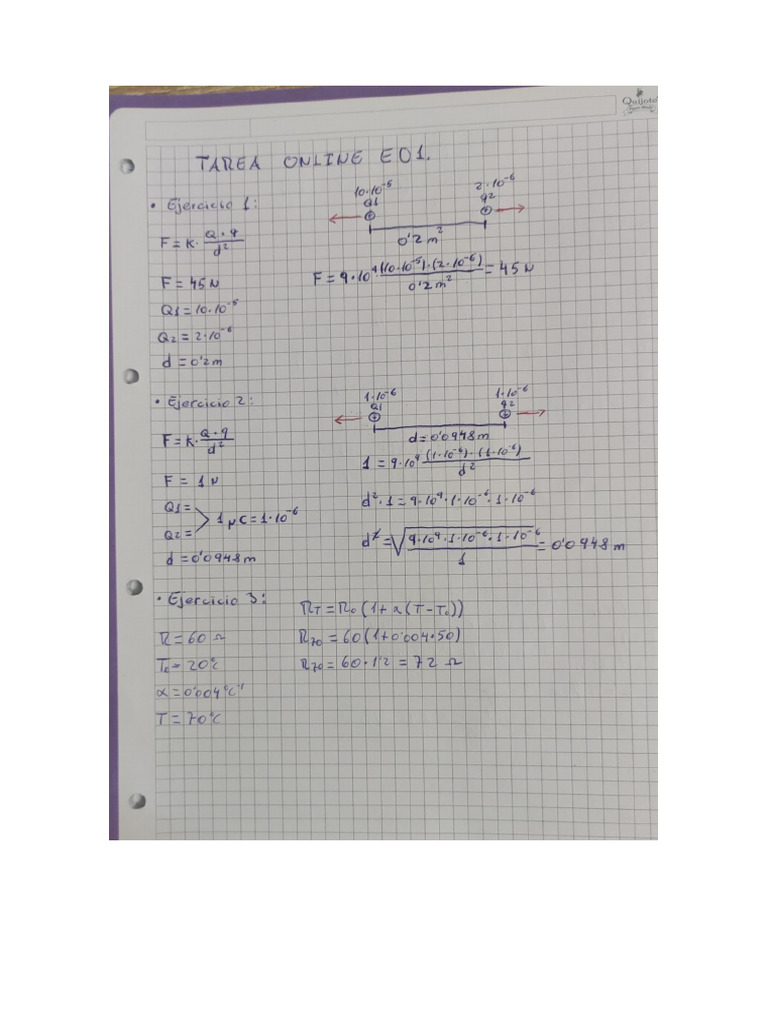 Quijote
TAREA ONLINE E01.
• Ejercicio 1:
10·10⁻⁵ 2·10⁻⁶
Q1 q2
+ +
0'2 m²
F = K · Q · q / d²
F = 9·10⁹ · (10·10⁻⁵)·(2·10⁻⁶) / 0'2 m² = 45 N
F = 45 N
Q1 = 10·10⁻⁵
Q2 = 2·10⁻⁶
d = 0'2 m
• Ejercicio 2:
1·10⁻⁶ 1·10⁻⁶
Q1 q2
+ +
d = 0'0948 m
F = K · Q · q / d²
1 = 9·10⁹ (1·10⁻⁶)·(1·10⁻⁶) / d²
F = 1 N
d² · 1 = 9·10⁹ · 1·10⁻⁶ · 1·10⁻⁶
Q1 =
1 μC = 1·10⁻⁶
Q2 =
d = √ 9·10⁹ · 1·10⁻⁶ · 1·10⁻⁶ / 1 = 0'0948 m
d = 0'0948 m
• Ejercicio 3:
R_T = R₀ (1 + α (T - T₀))
R = 60 Ω
R₇₀ = 60 (1 + 0'004 · 50)
T₀ = 20°C
R₇₀ = 60 · 1'2 = 72 Ω
α = 0'004 °C⁻¹
T = 70°C